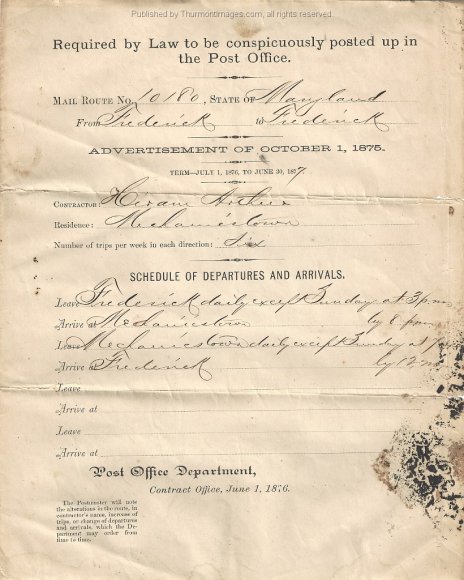 Published by Thurmontimages.com, all rights reserved
Required by Law to be conspicuously posted up in
the Post Office.
MAIL ROUTE No. 10180, STATE OF Maryland
From Frederick to Frederick
ADVERTISEMENT OF OCTOBER 1, 1875.
TERM—JULY 1, 1876, TO JUNE 30, 1877.
CONTRACTOR: Hiram
Residence: Mechanicstown
Number of trips per week in each direction: Six
SCHEDULE OF DEPARTURES AND ARRIVALS.
Leave Frederick daily except Sunday at 3 p.m.
Arrive at Mechanicstown by 6 p.m.
Leave Mechanicstown daily except Sunday at
Arrive at Frederick by 12 m
Leave
Arrive at
Leave
Arrive at
Post Office Department,
Contract Office, June 1, 1876.
The Postmaster will note
the alterations in the route, in
contractor's name, increase of
trips, or change of departures
and arrivals, which the De-
partment may order from
time to time.